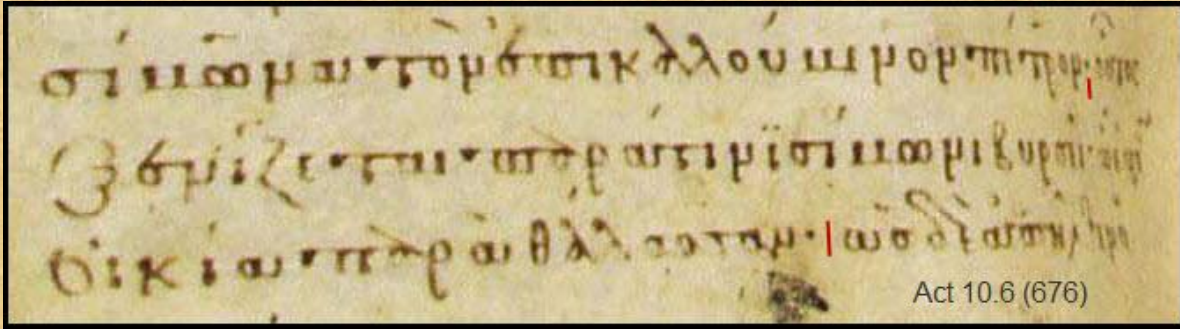 σίμωνα τὸν ἐπικαλούμενον πέτρον· οὗτος
ξενίζεται παρά τινι σίμωνι βυρσεῖ·
οἰκία παρὰ θάλασσαν· ὡς δὲ ἀπῆλθεν
Act 10.6 (676)